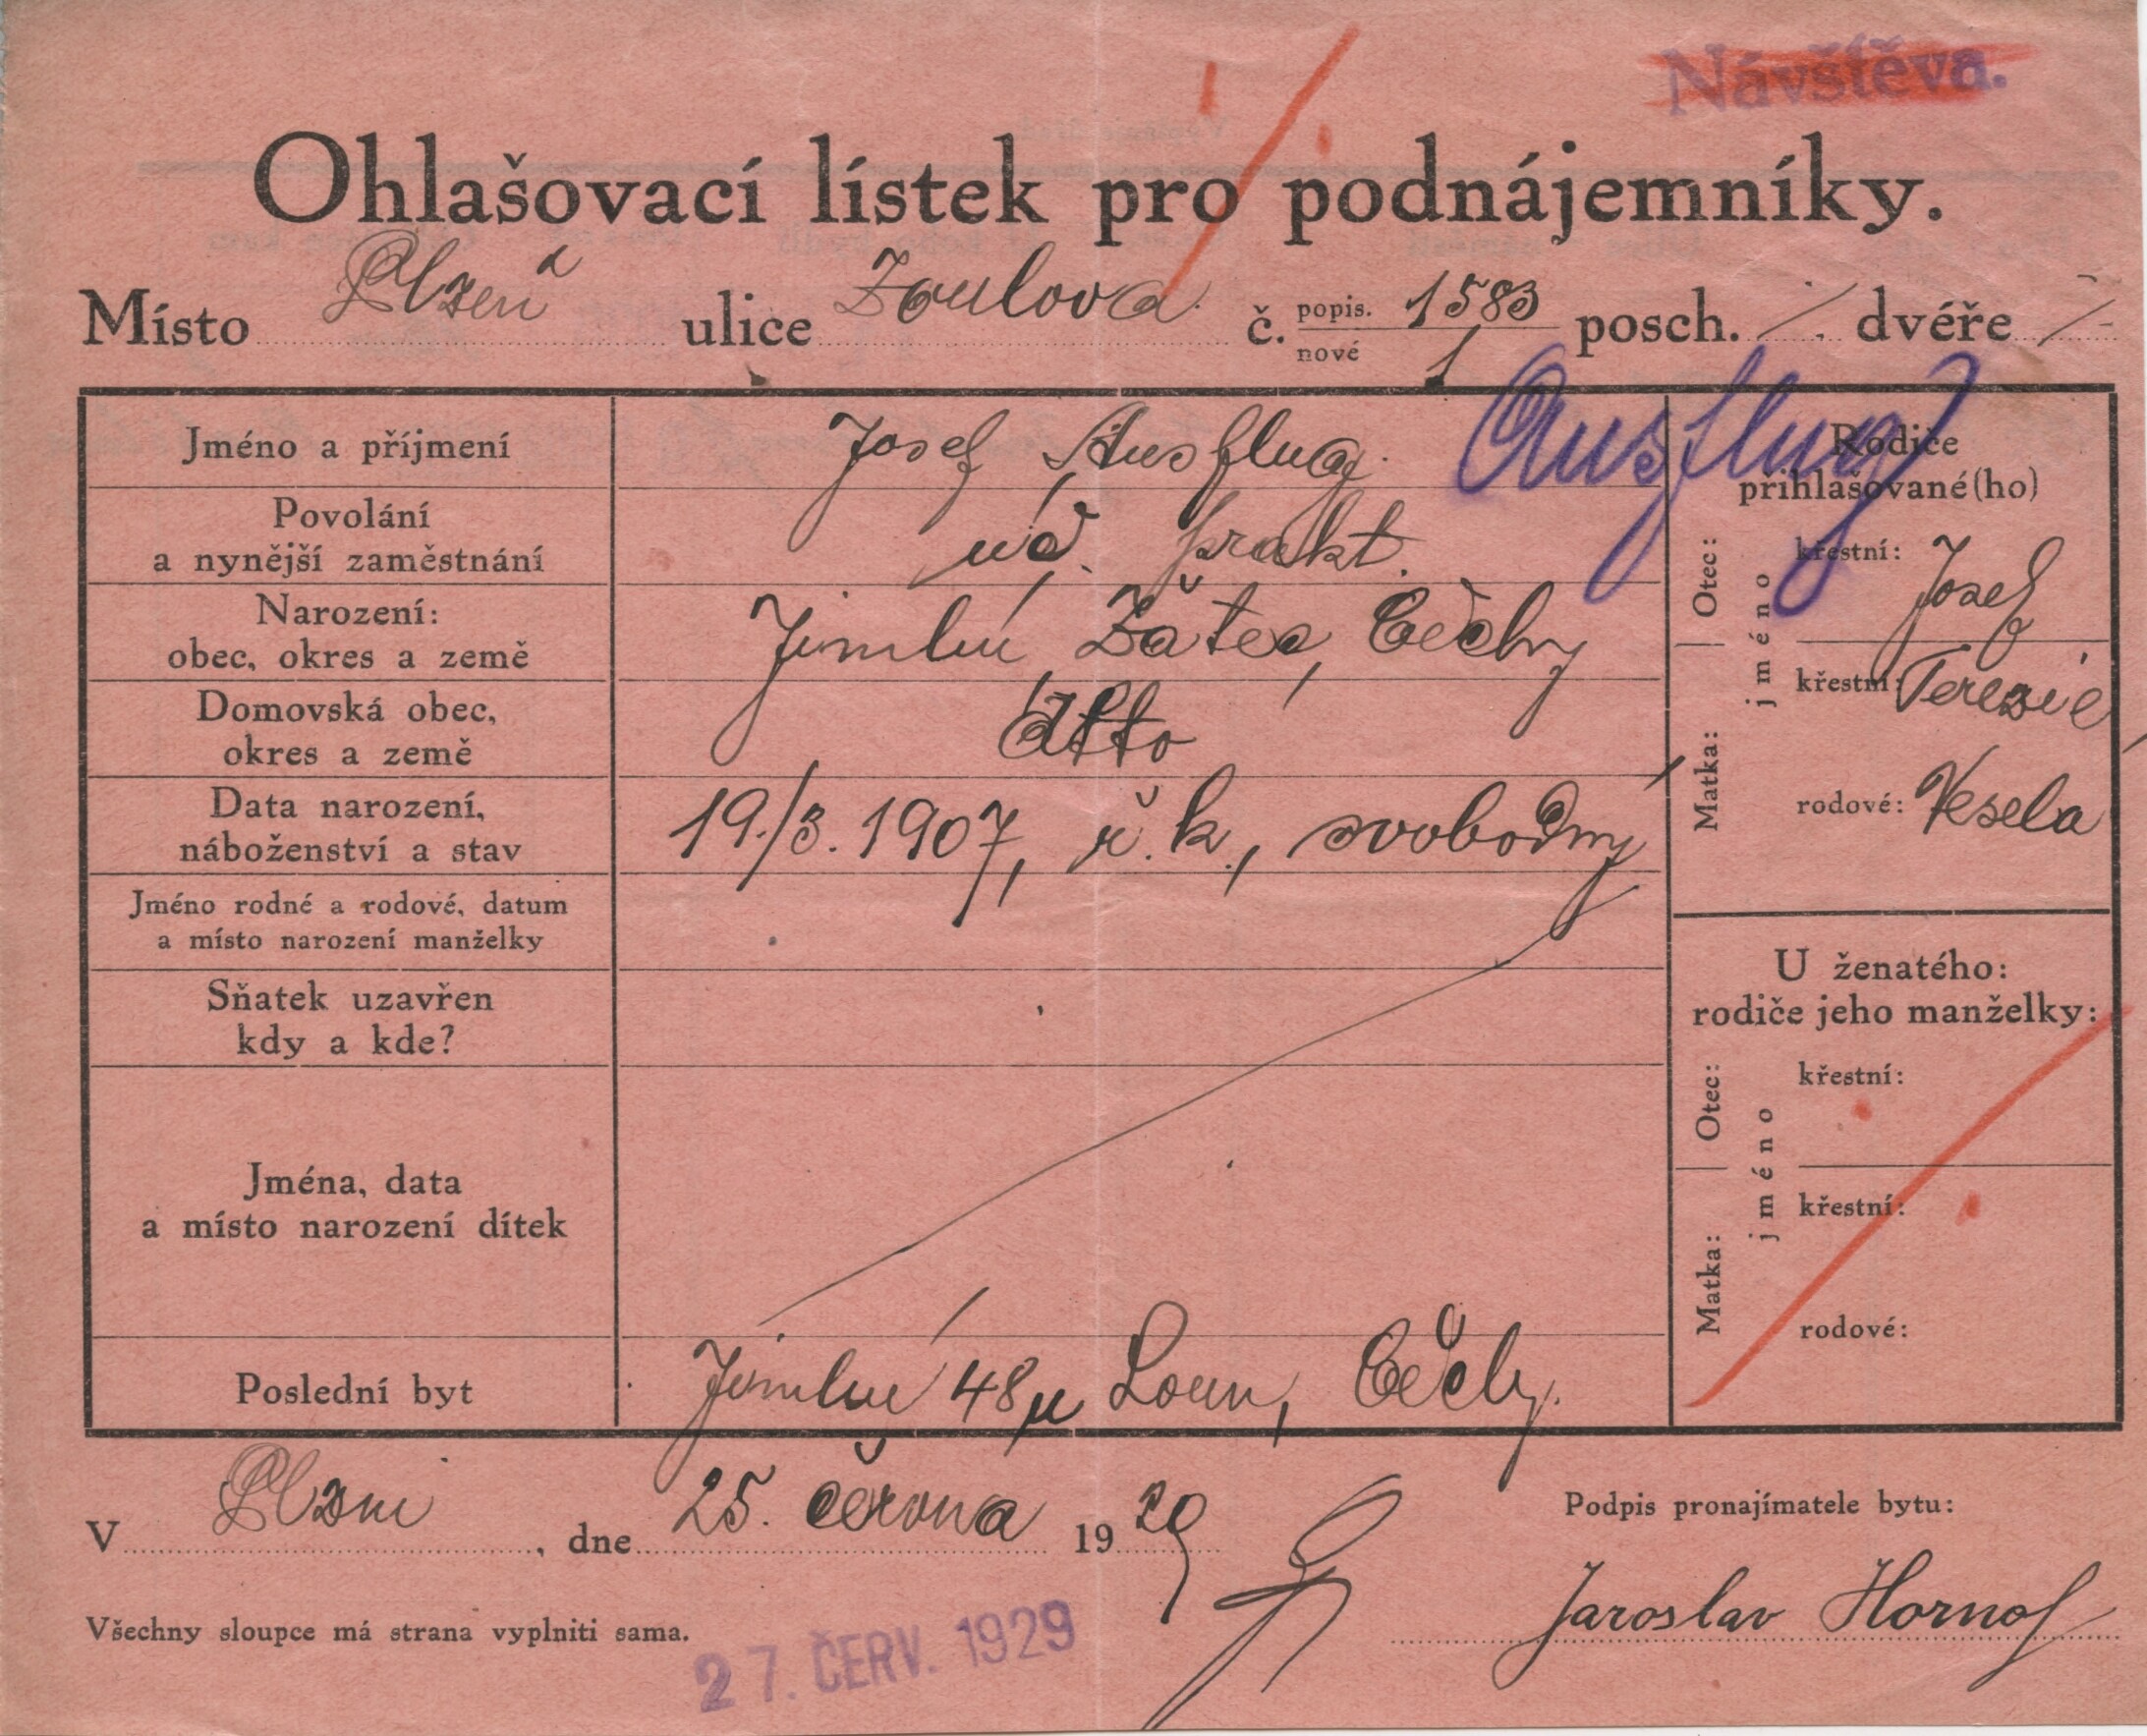 Návštěva.
Ohlašovací lístek pro podnájemníky.
Místo Plzeň ulice Zoulova č. popis. 1583 nové 1 posch. /. dvéře /-
Jméno a příjmení Josef Ausflug. Ausflug
Povolání
a nynější zaměstnání úč. prakt.
Narození:
obec, okres a země Jimlín, Žatec, Čechy
Domovská obec,
okres a země dtto
Data narození,
náboženství a stav 19./3. 1907, ř. k., svobodný
Jméno rodné a rodové, datum
a místo narození manželky
Sňatek uzavřen
kdy a kde?
Jména, data
a místo narození dítek
Poslední byt Jimlín 48 u Loun, Čechy.
Rodiče
přihlašované(ho)
Otec: jméno křestní: Josef
Matka: křestní: Terezie,
rodové: Veselá
U ženatého:
rodiče jeho manželky:
Otec: jméno křestní:
Matka: křestní:
rodové:
V Plzni, dne 25. června 1929
Podpis pronajímatele bytu:
Jaroslav Hornof
Všechny sloupce má strana vyplniti sama.
27. ČERV. 1929